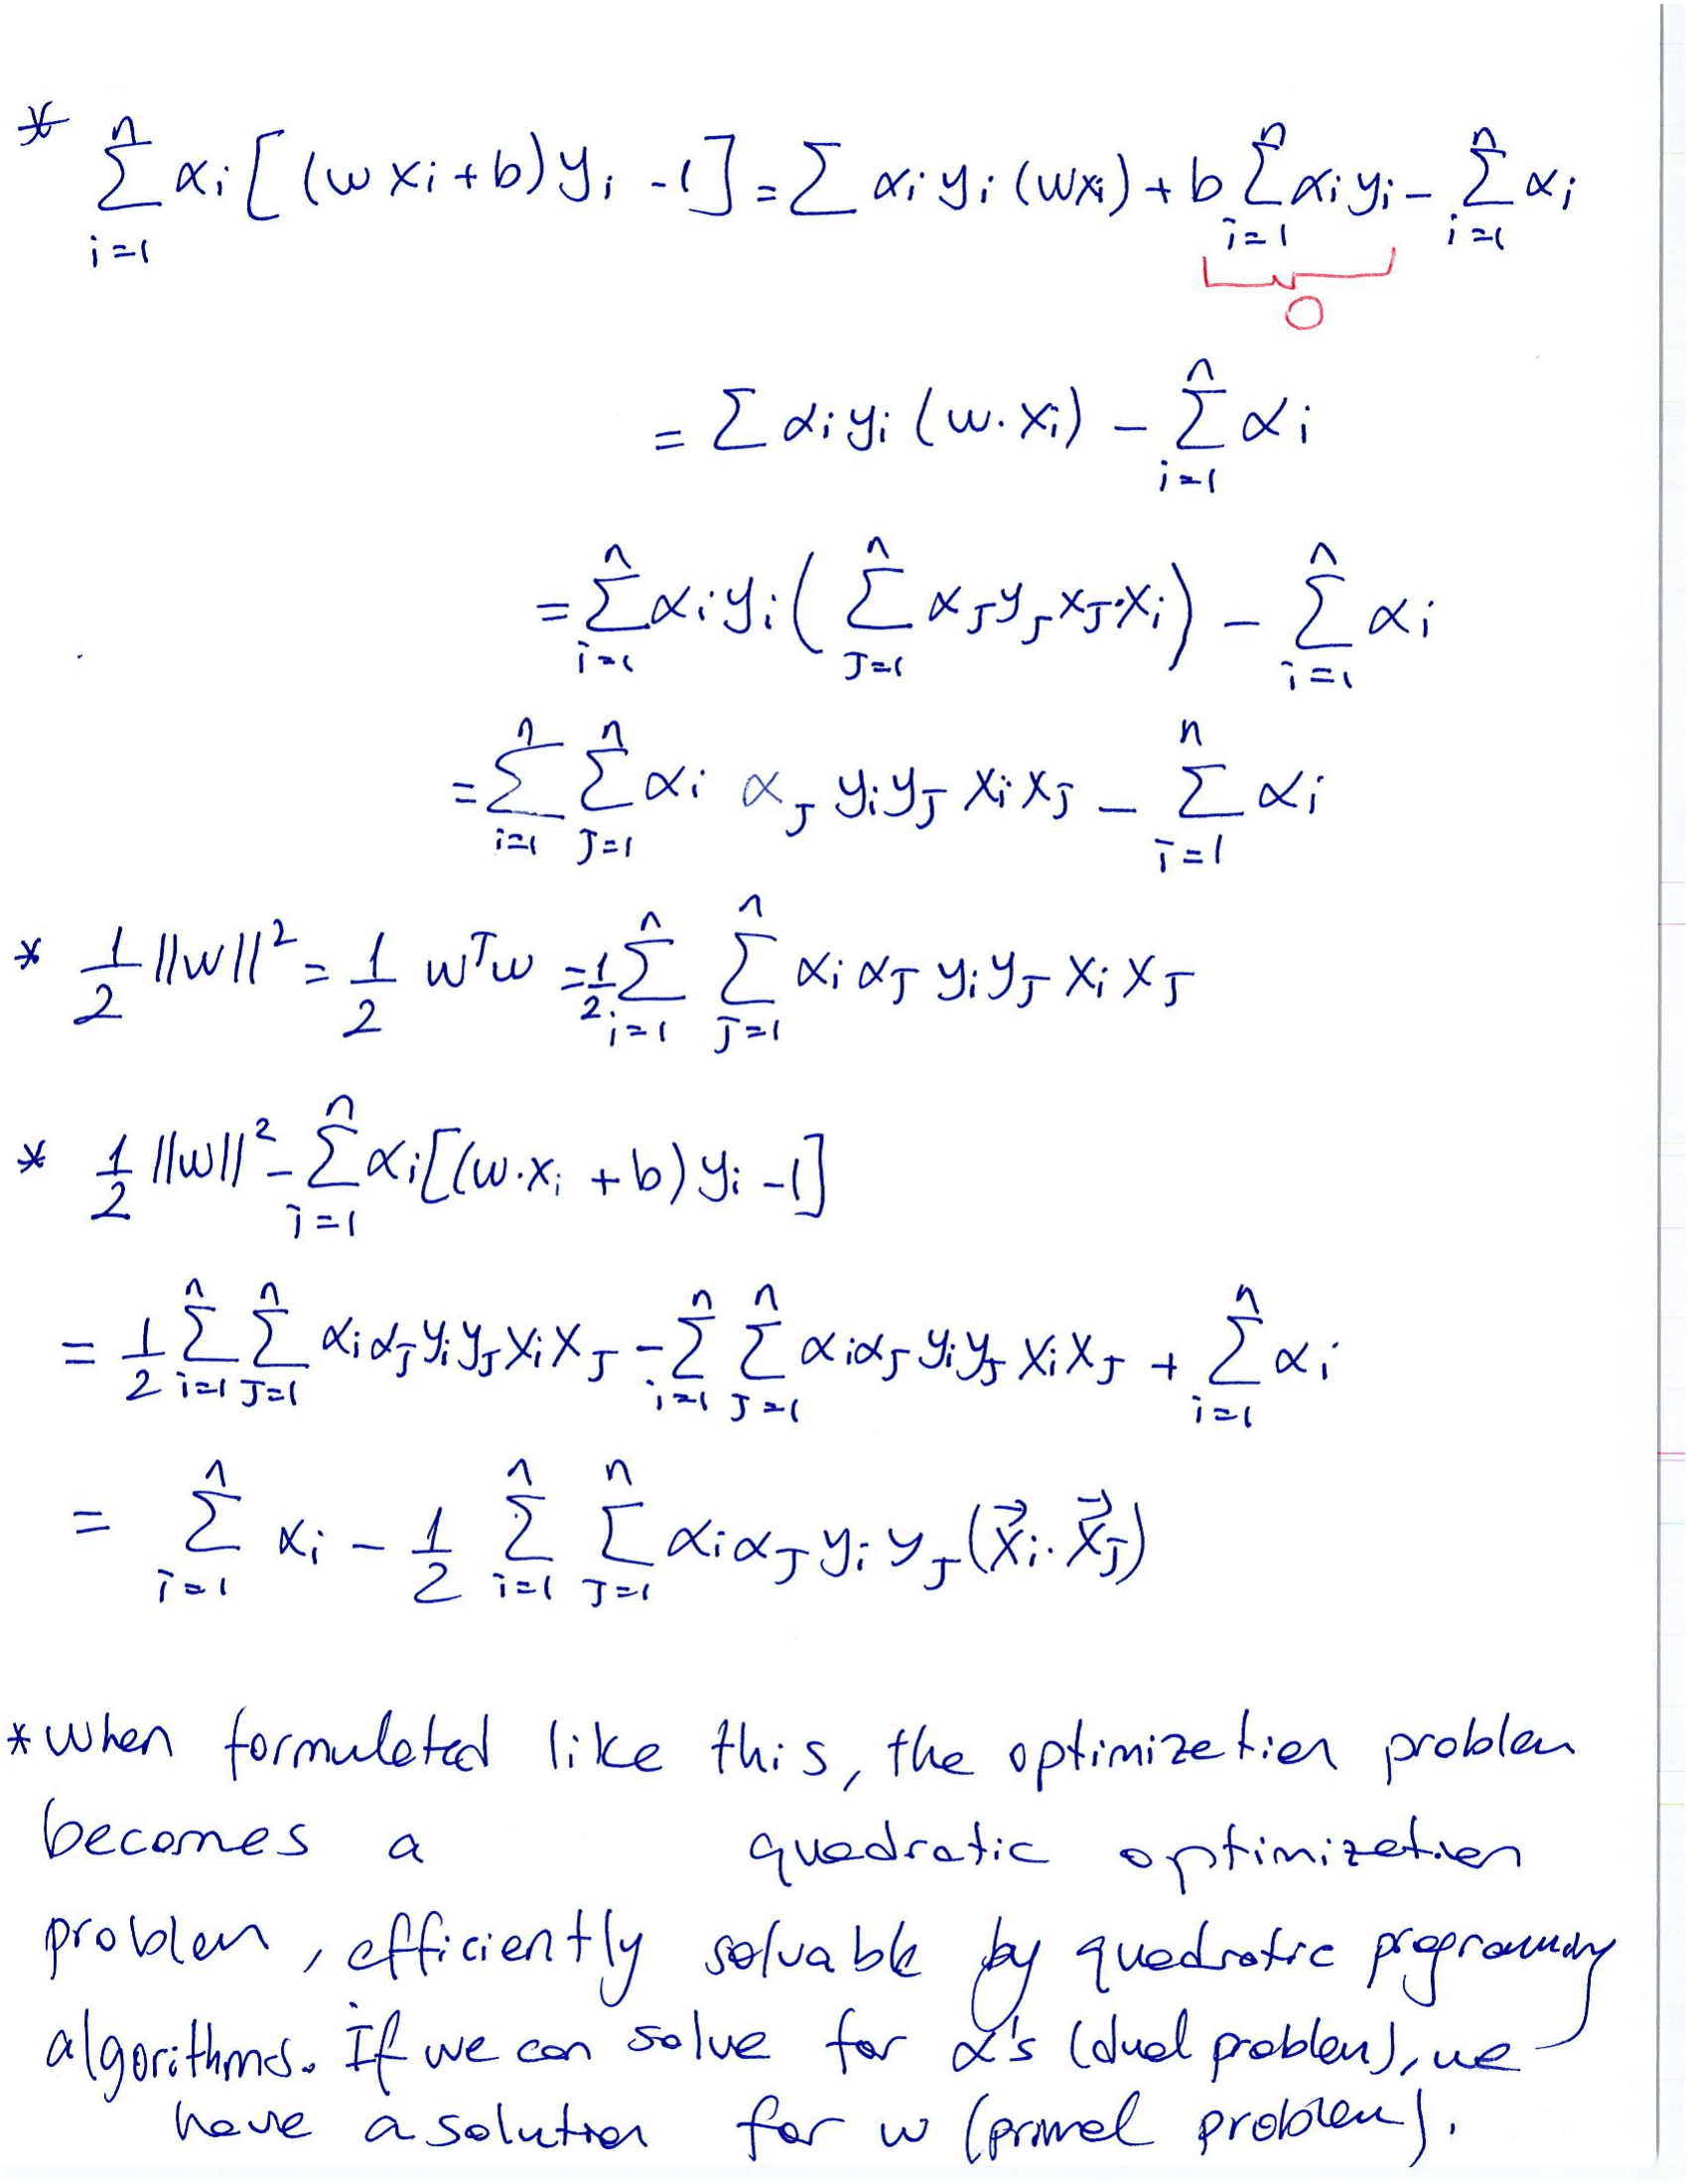 * \sum_{i=1}^{n} α_i [ (w x_i + b) y_i - 1 ] = \sum α_i y_i (w x_i) + b \sum_{i=1}^{n} α_i y_i - \sum_{i=1}^{n} α_i
0
= \sum α_i y_i (w . x_i) - \sum_{i=1}^{n} α_i
= \sum_{i=1}^{n} α_i y_i ( \sum_{J=1}^{n} α_J y_J x_J . x_i ) - \sum_{i=1}^{n} α_i
= \sum_{i=1}^{n} \sum_{J=1}^{n} α_i α_J y_i y_J x_i x_J - \sum_{i=1}^{n} α_i
* \frac{1}{2} ||w||^2 = \frac{1}{2} w^T w = \frac{1}{2} \sum_{i=1}^{n} \sum_{J=1}^{n} α_i α_J y_i y_J x_i x_J
* \frac{1}{2} ||w||^2 - \sum_{i=1}^{n} α_i [ (w . x_i + b) y_i - 1 ]
= \frac{1}{2} \sum_{i=1}^{n} \sum_{J=1}^{n} α_i α_J y_i y_J x_i x_J - \sum_{i=1}^{n} \sum_{J=1}^{n} α_i α_J y_i y_J x_i x_J + \sum_{i=1}^{n} α_i
= \sum_{i=1}^{n} α_i - \frac{1}{2} \sum_{i=1}^{n} \sum_{J=1}^{n} α_i α_J y_i y_J (\vec{x}_i . \vec{x}_J)
* When formulated like this, the optimization problem
becomes a quadratic optimization
problem, efficiently solvable by quadratic programming
algorithms. If we can solve for α's (dual problem), we
have a solution for w (primal problem).